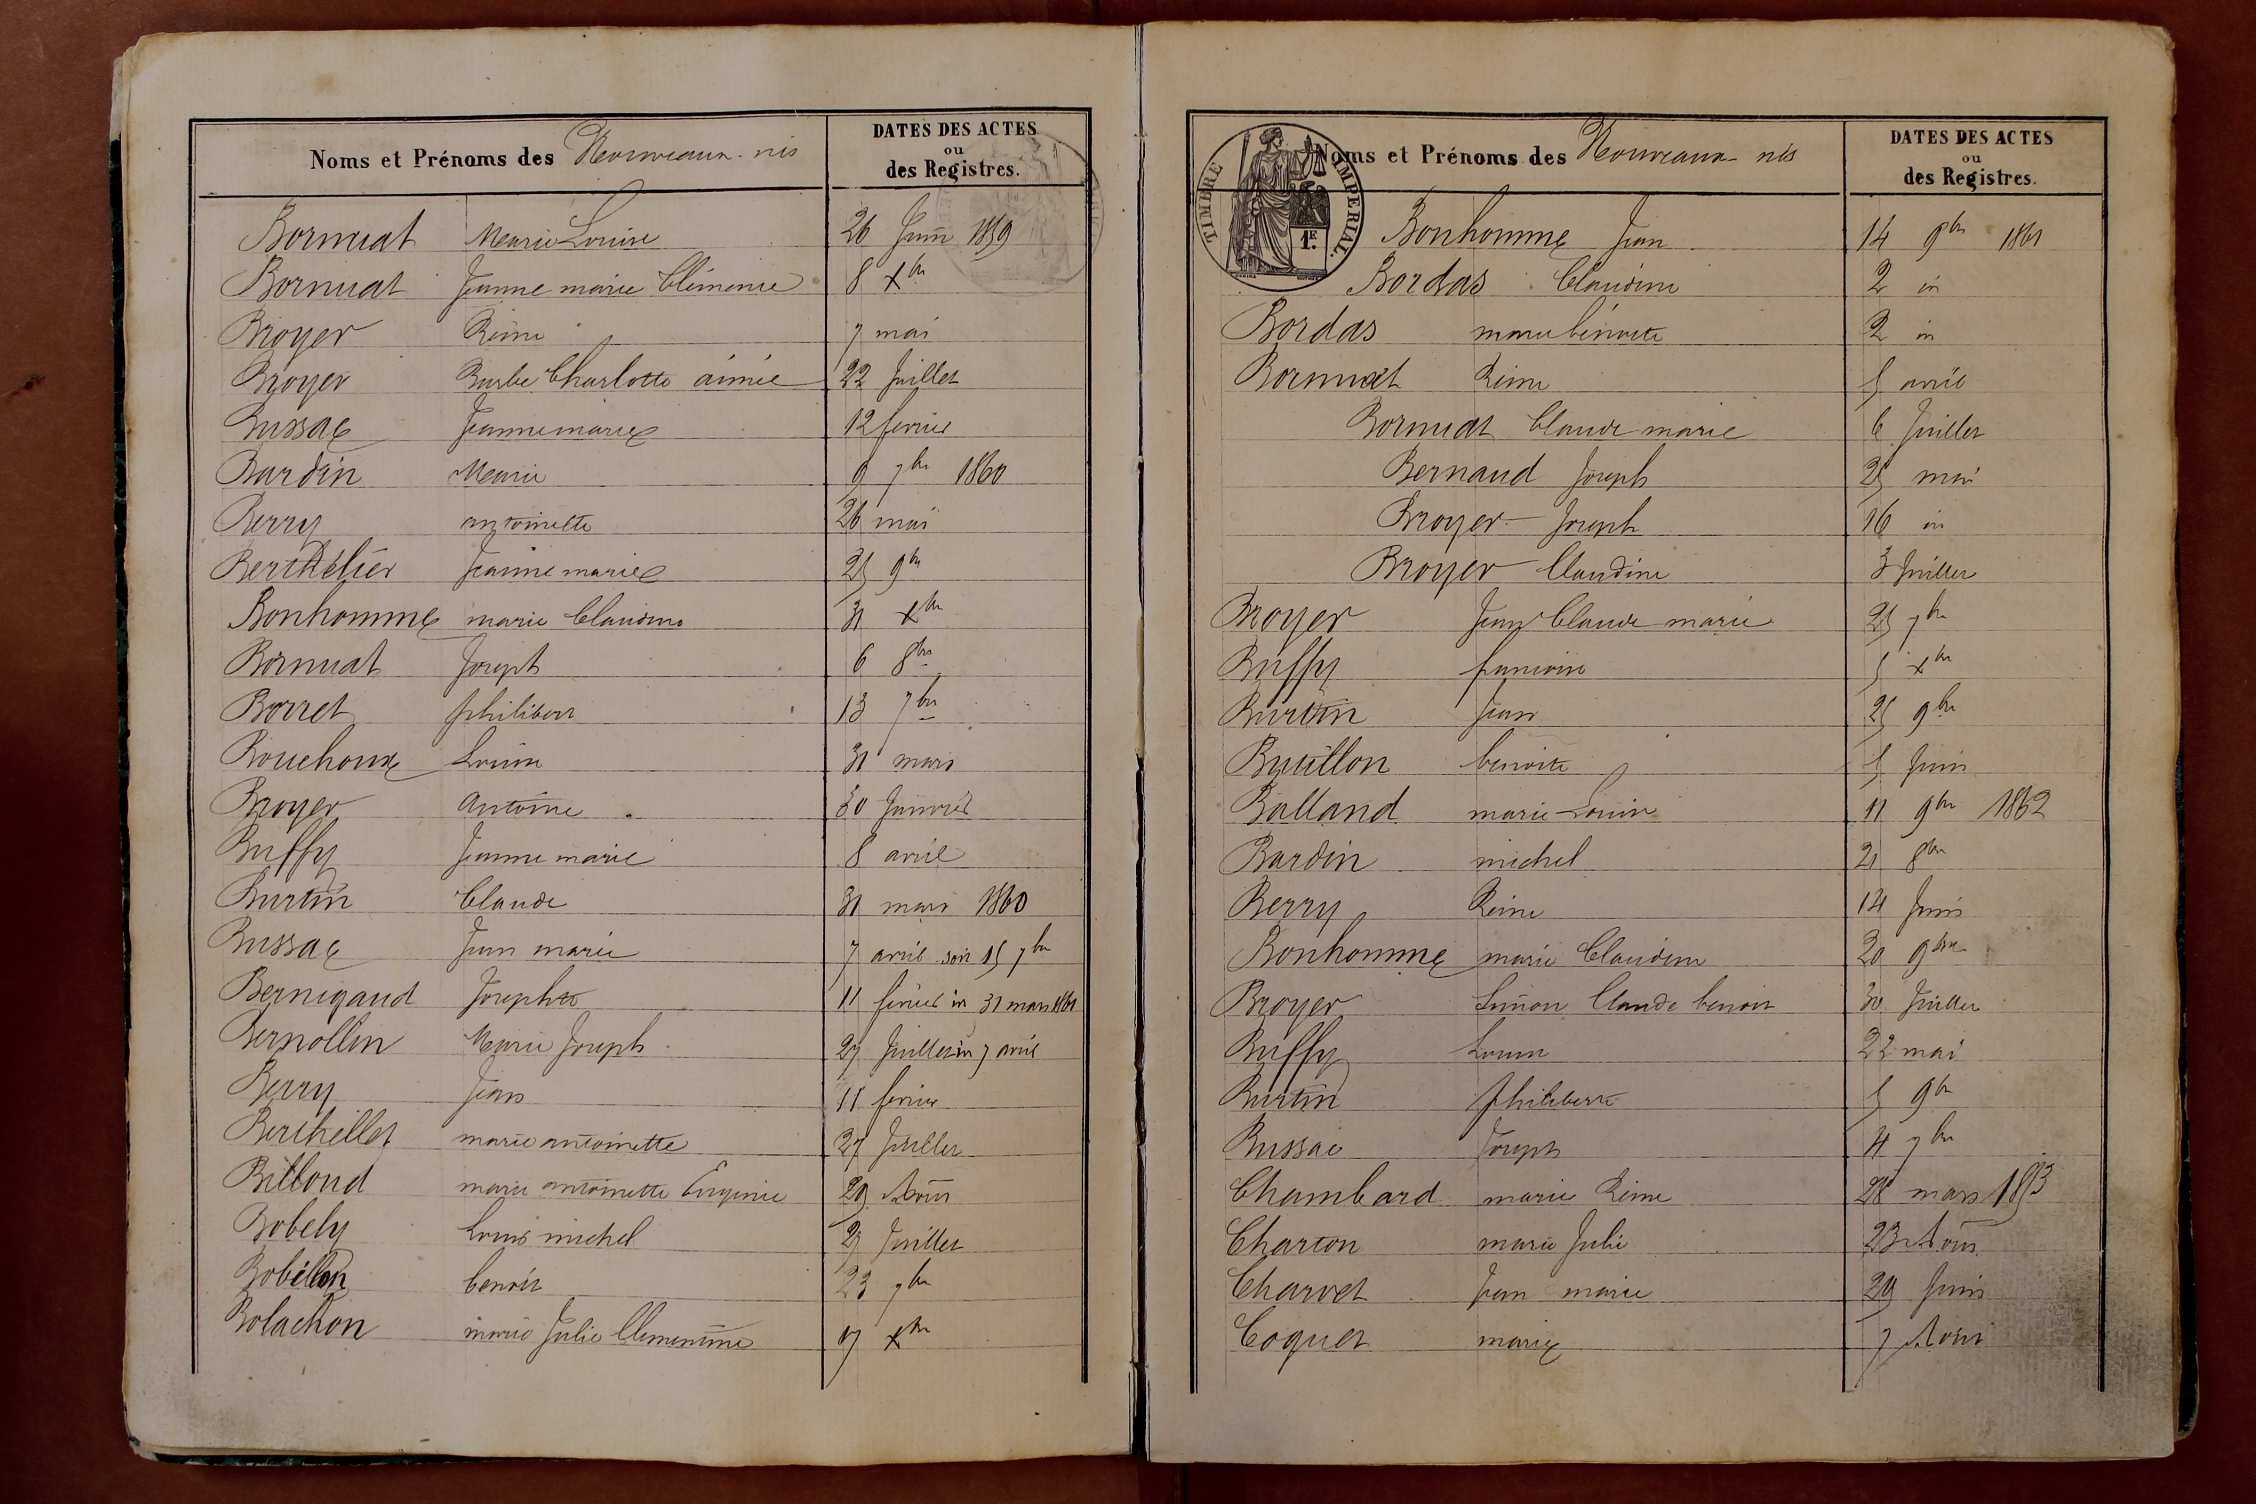 Noms et Prénoms des Nouveaux nés
DATES DES ACTES
ou
des Registres.
Bornuat Marie Louise 26 Juin 1859
Bornuat Jeanne marie Clémence 8 xbre
Broyer Reine 7 mai
Broyer Barbe Charlotte aimée 22 Juillet
Bussac Jeanne marie 12 fevrier
Bardin Marie 9 7bre 1860
Berry antoinette 26 mai
Berthelier Jeanne marie 25 9bre
Bonhomme marie Claudine 31 xbre
Bornuat Joseph 6 8bre
Borret philibert 13 7bre
Bouchoux Louise 31 mars
Broyer Antoine 30 Janvier
Buffy Jeanne marie 8 avril
Burtin Claude 31 mars 1860
Bussac Jean marie 7 avril 15 7bre
Bernigaud Josephte 11 fevrier 31 mars 1861
Bernollin Marie Joseph 27 Juillet 7 avril
Berry Jean 11 fevrier
Berthellet marie antoinette 27 Juillet
Billoud marie antoinette Eugenie 29 Aout
Bobely Louis michel 27 Juillet
Bobillon benoit 23 7bre
Bolachon marie Julie Clementine 17 xbre
TIMBRE IMPERIAL.
1E.
Noms et Prénoms des Nouveaux nés
DATES DES ACTES
ou
des Registres.
Bonhomme Jean 14 9bre 1861
Bordas Claudine 2
Bordas marie benoite 2
Bornuat Reine 5 avril
Bornuat Claude marie 6 Juillet
Bernaud Joseph 25 mai
Broyer Joseph 16
Broyer Claudine 3 Juillet
Broyer Jean Claude marie 25 7bre
Buffy francoise 5 xbre
Burtin Jean 25 9bre
Buillon benoite 5 Juin
Balland marie Louise 11 9bre 1862
Bardin michel 21 8bre
Berry Reine 14 Juin
Bonhomme marie Claudine 20 9bre
Broyer Simon Claude benoit 30 Juillet
Buffy Louise 22 mai
Burtin philiberte 5 9bre
Bussac Joseph 4 7bre
Chambard marie Reine 28 mars 1853
Charton marie Julie 23 Aout
Charvet Jean marie 29 Juin
Coquet marie 7 Aout